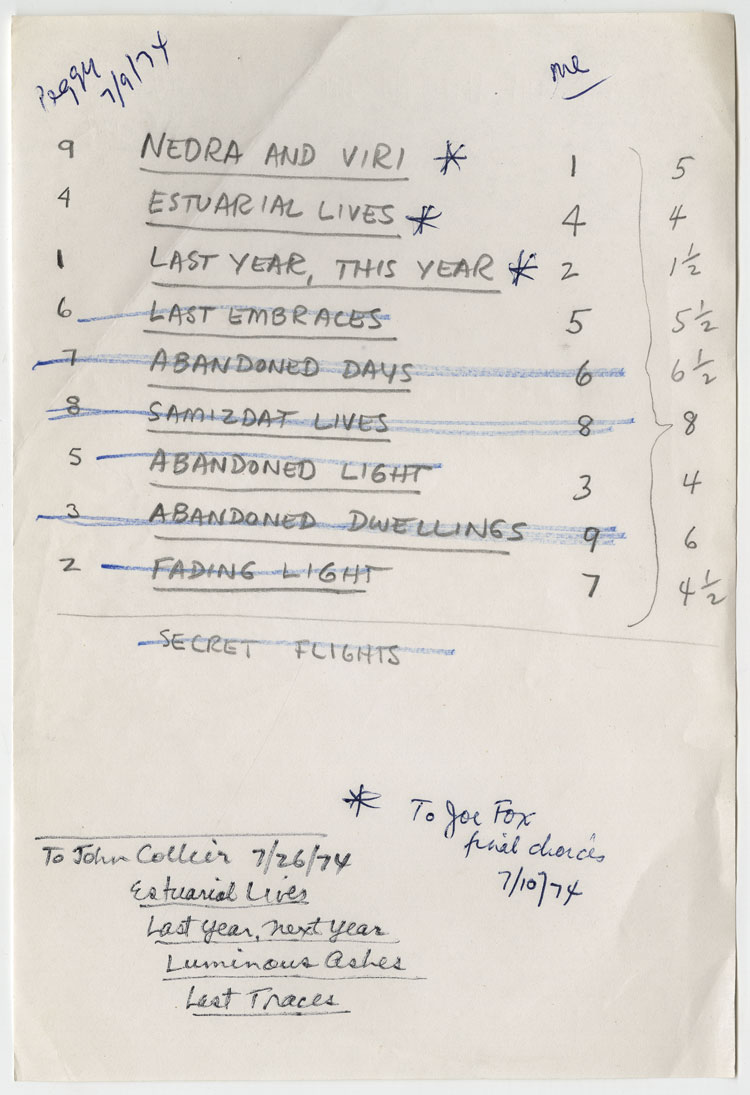 Peggy me
7/9/74
9 NEDRA AND VIRI * 1 5
4 ESTUARIAL LIVES * 4 4
1 LAST YEAR, THIS YEAR * 2 1 1/2
6 LAST EMBRACES 5 5 1/2
7 ABANDONED DAYS 6 6 1/2
8 SAMIZDAT LIVES 8 8
5 ABANDONED LIGHT 3 4
3 ABANDONED DWELLINGS 9 6
2 FADING LIGHT 7 4 1/2
SECRET FLIGHTS
* To Joe Fox
final choices
7/10/74
To John Collier 7/26/74
Estuarial Lives
Last Year, next Year
Luminous Ashes
Last Traces